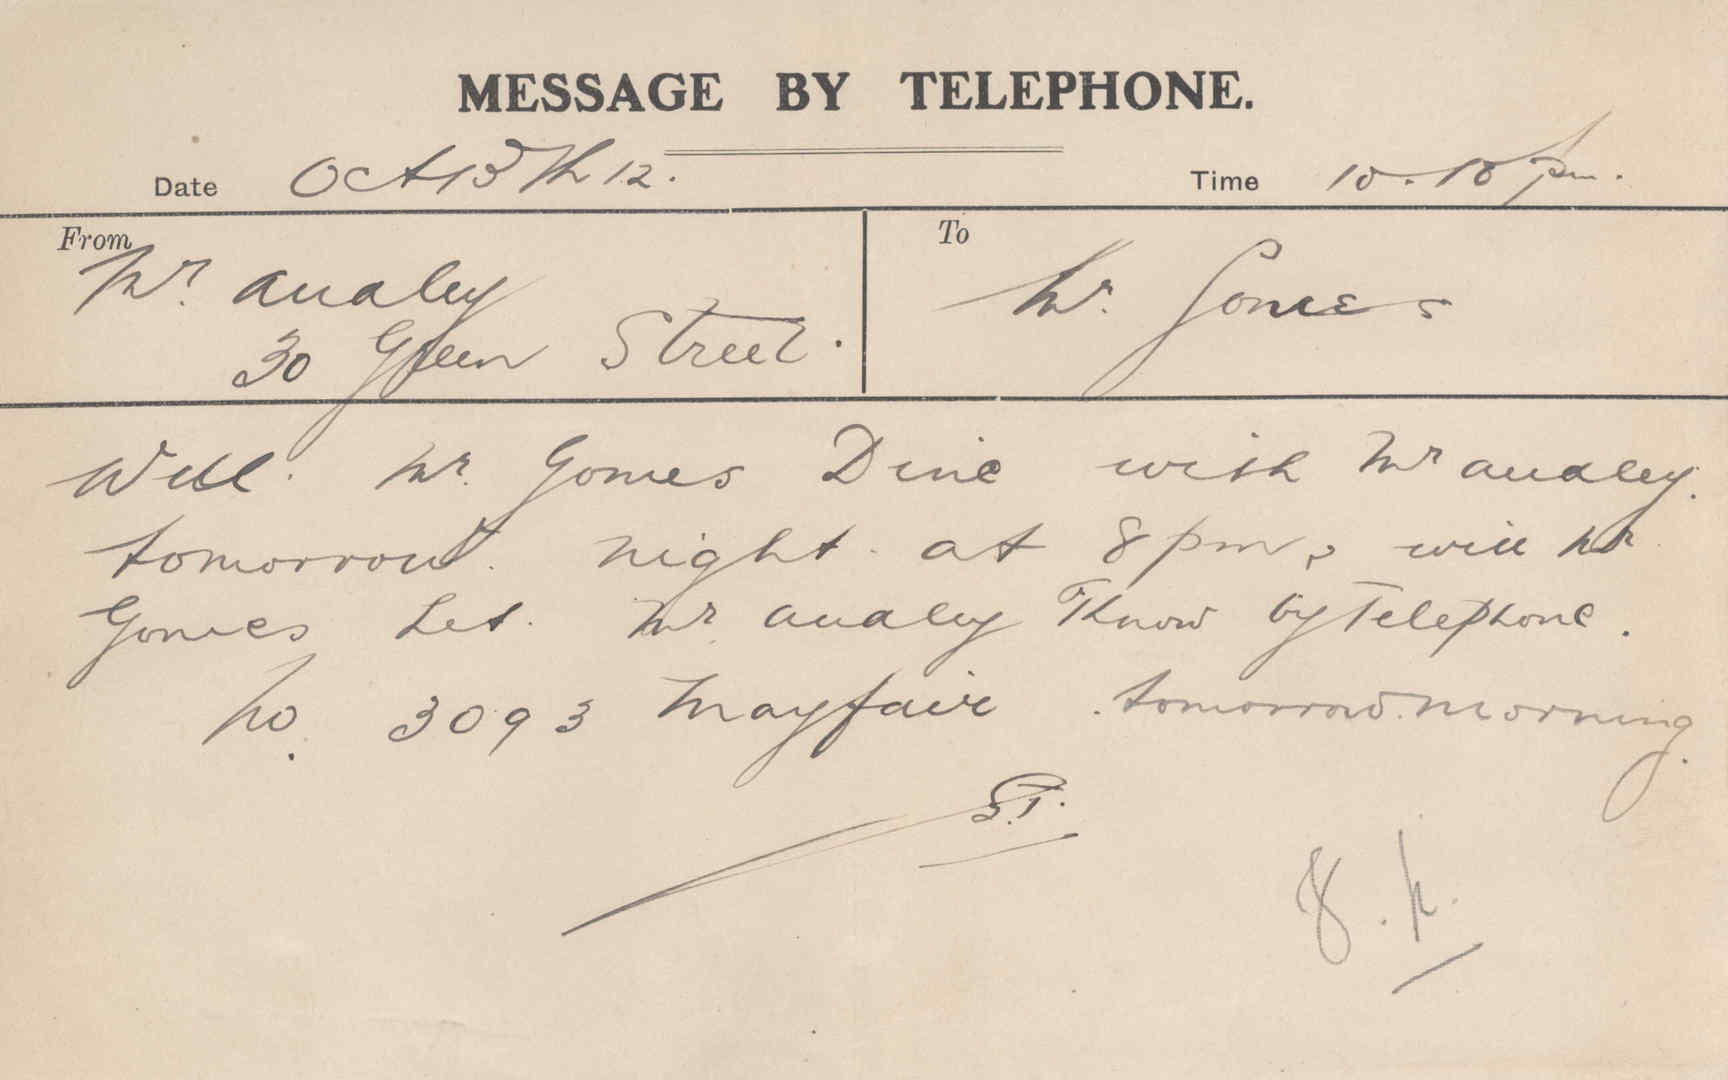 MESSAGE BY TELEPHONE.
Date Oct 13th 12. Time 10.10 pm.
From To
Mr. Audley Mr. Gomes
30 Green Street.
Will Mr. Gomes Dine with Mr Audley.
tomorrow night at 8 pm, will Mr
Gomes let Mr Audley Know by Telephone.
No. 3093 Mayfair. tomorrow morning.
S.T.